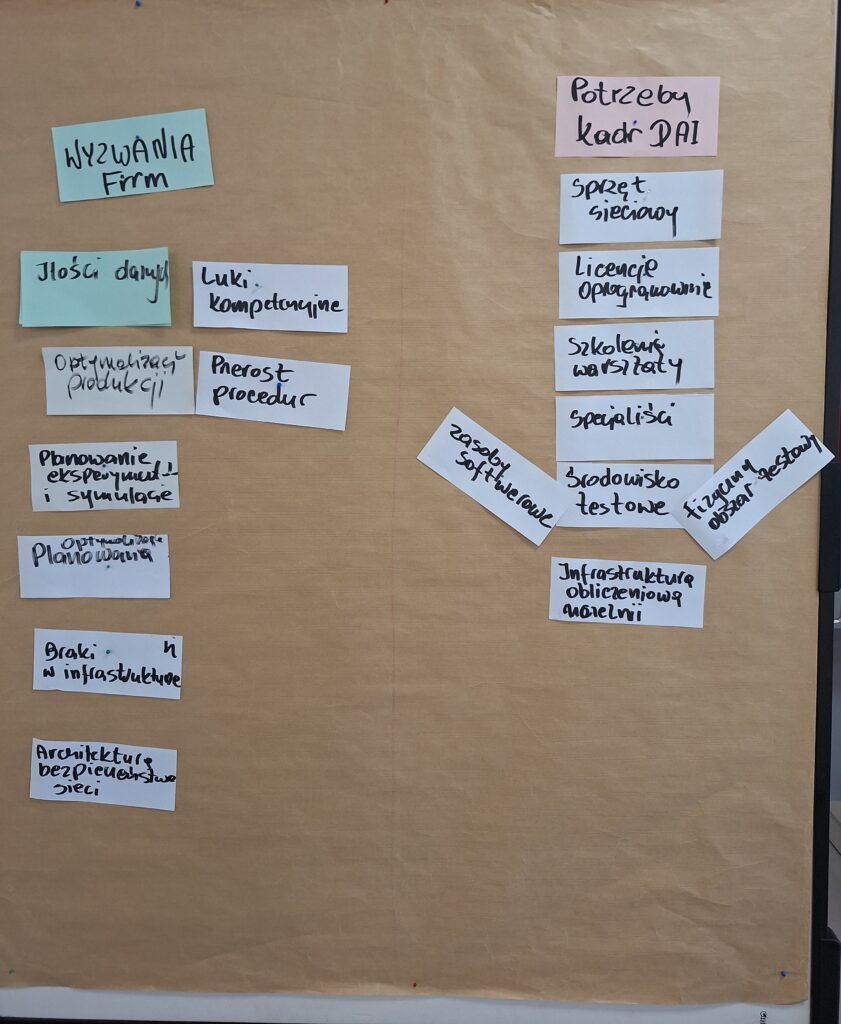 WYZWANIA
Firm
Ilości danych
Luki
kompetencyjne
Optymalizacja
produkcji
Przerost
procedur
Planowanie
eksperyment
i symulacje
Optymalizacja
Planowania
Braki
w infrastrukturze
Architektura
bezpieczeństwa
sieci
Potrzeby
kadr DAI
Sprzęt
sieciowy
Licencje
oprogramownie
Szkolenia
warsztaty
Specjaliści
Zasoby
softwerowe
Środowisko
testowe
fizyczny
obszar testowy
Infrastruktura
obliczeniowa
uczelnii